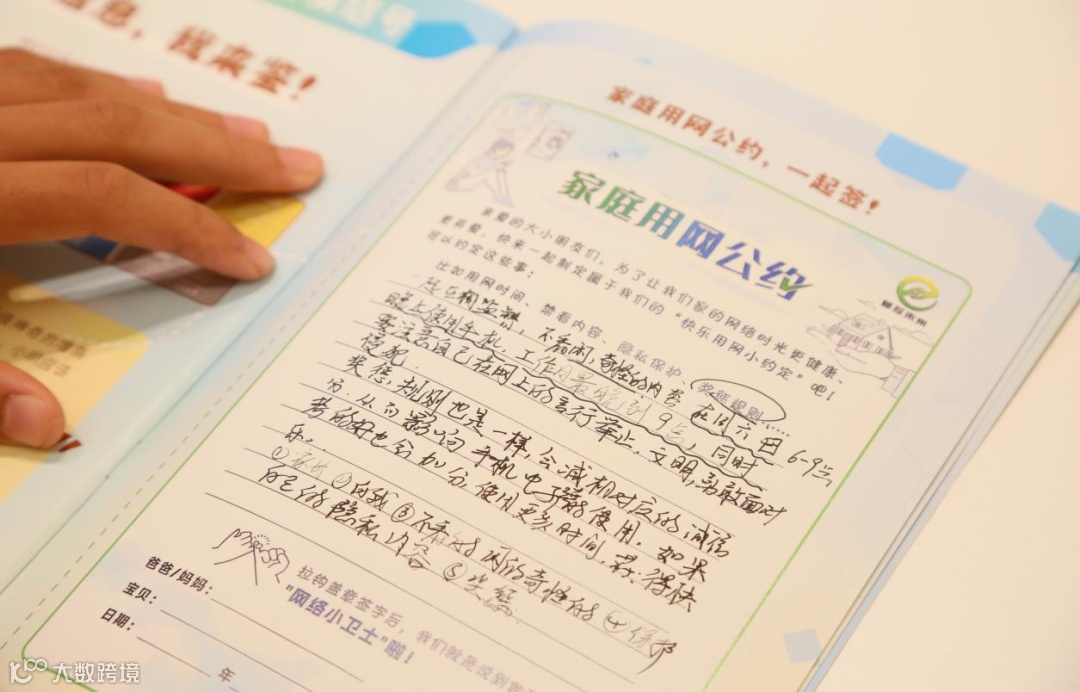 信息，我来鉴！
家庭用网公约，一起签！
家庭用网公约
亲爱的大小朋友们，为了让我们家的网络时光更健康、
更有爱，快来一起制定属于我们的“快乐用网小约定”吧！
可以约定这些事：
比如用网时间、禁看内容、隐私保护、奖惩规则……
互相监督，不看闲，奇怪的内容 在周六日 6-9点
晚上使用手机，工作日最晚到9点，同时
要注意自己在网上的言行举止，文明，勇敢面对
侵犯．
奖惩规则也是一样，会减相对应的减
分，从而影响手机电子使用．如果
表的好也会加分，使用更多时间，获得快
乐。
①②自我③不看的奇怪的④保护
自己的隐私内容⑤奖惩
拉钩盖章签字后，我们就是说到
“网络小卫士”啦！
爸爸/妈妈：
宝贝：
日期：
年
大数跨境